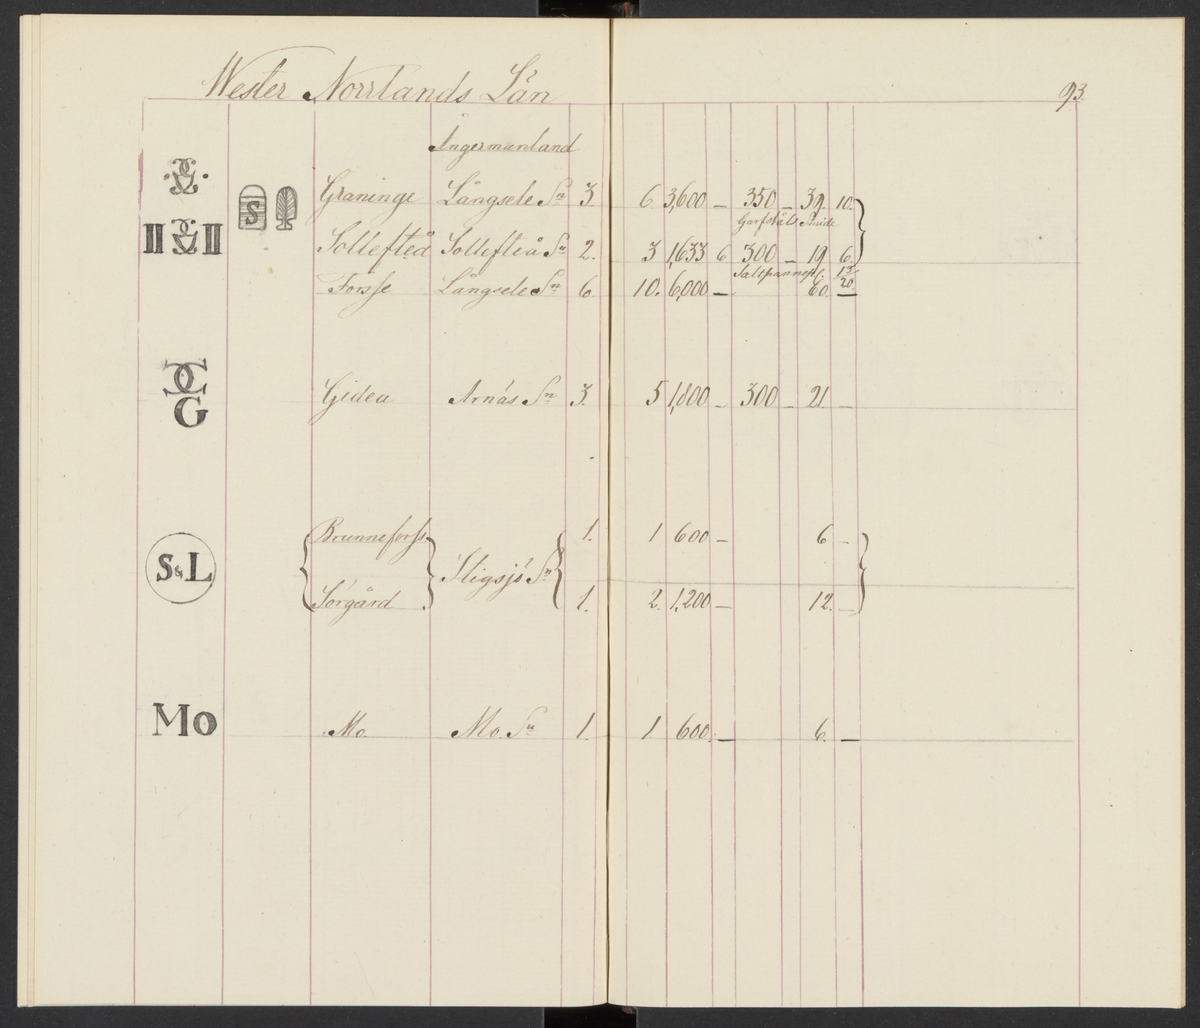 Wester Norrlands Län
93.
Ångermanland
S Graninge Långsele Sn 3. 6. 3,600 — 350 — 39. 10.
Garfståls Smide
II II Sollefteå Sollefteå Sn 2. 3 1,633 6 300 — 19 6.
Forsse Långsele Sn 6. 10. 6,000 — 60. —
G Gidea Arnäs Sn 3. 5 1,800 — 300 — 21. —
Brunneforss 1. 1 600 — 6 —
S&L Stigsjö Sn
Sörgård 1. 2. 1,200 — 12. —
Mo Mo. Mo. Sn 1. 1 600. — 6. —